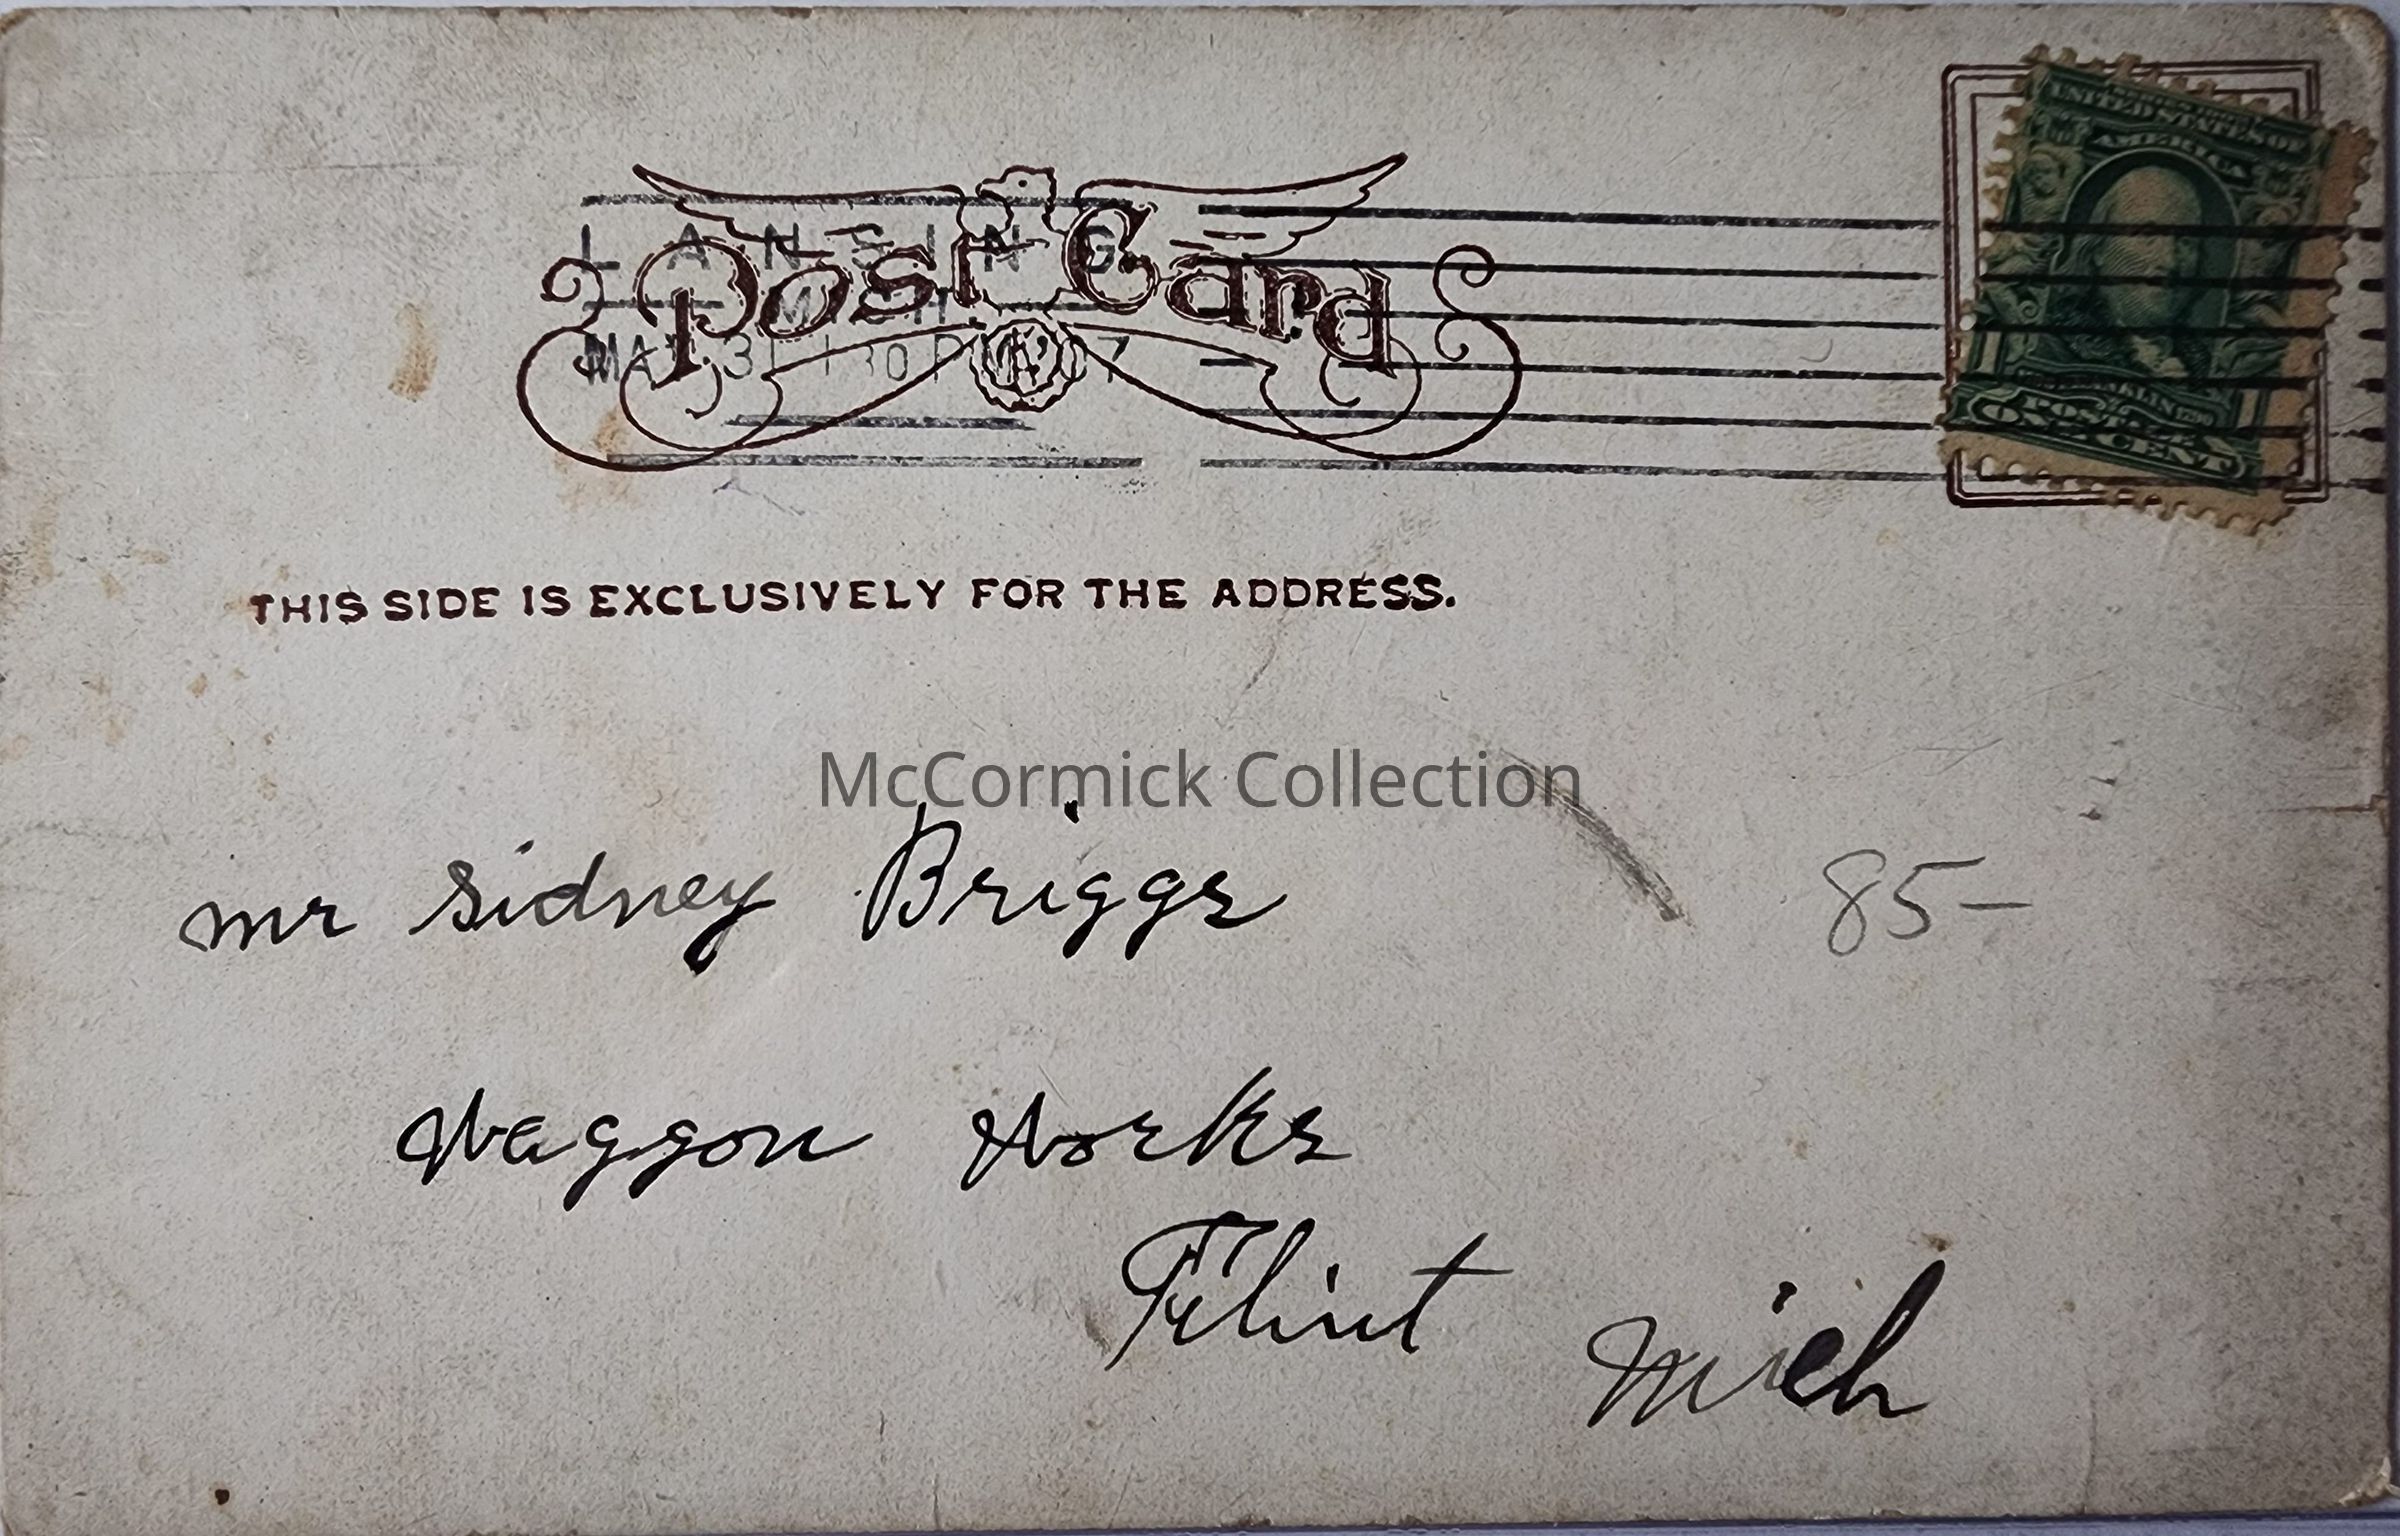 UNITED STATES OF
AMERICA
LANSING
Post Card
MICH.
MAY 31 130 PM '07
POSTAGE
ONE CENT
THIS SIDE IS EXCLUSIVELY FOR THE ADDRESS.
McCormick Collection
mr Sidney Briggs
85-
Waggon Works
Flint Mich